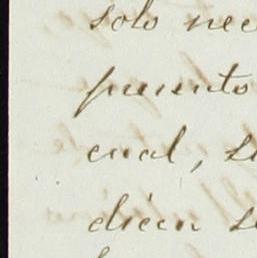 solo nec
puento
cual, s
dicen se